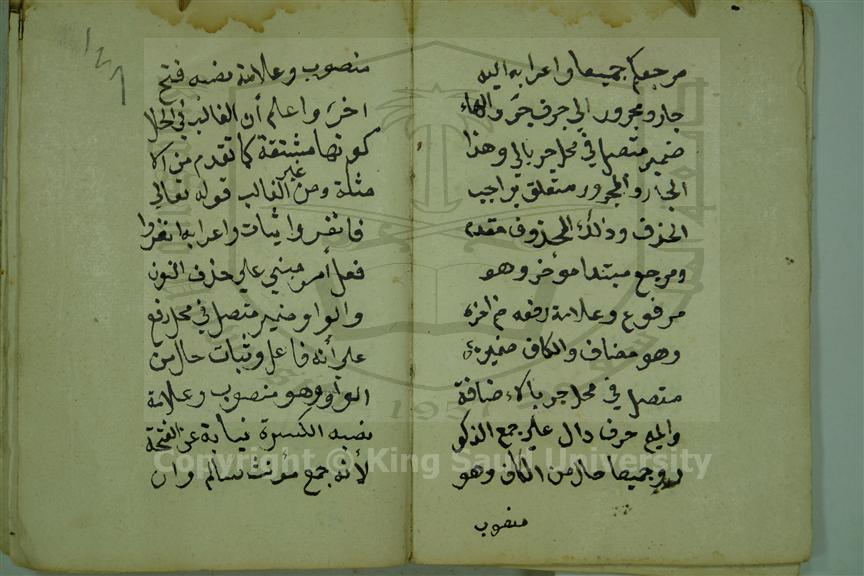 مرجعكم جميعا واعرابه اليه
جار ومجرور الي حرف جر والهاء
ضمير متصل في محل جر بالي وهذا
الجار والمجرور متعلق بواجب
الحذف وذلك المحذوف مقدم
ومرجع مبتدا مؤخر وهو
مرفوع وعلامة رفعه ضم اخره
وهو مضاف والكاف ضمير
متصل في محل جر بالاضافة
والميم حرف دال علي جمع الذكو
ر وجميعا حال من الكاف وهو
منصوب
منصوب وعلامة نصبه فتح
اخره واعلم أن الغالب في الحال
كونها مشتقة كما تقدم من الا
مثلة ومن غير الغالب قوله تعالي
فانفروا ثبات واعرابه انفروا
فعل أمر مبني علي حذف النون
والواو ضمير متصل في محل رفع
علي أنه فاعل وثبات حال من
الواو وهو منصوب وعلامة
نصبه الكسرة نيابة عن الفتحة
لأنه جمع مؤنث سالم وان
Copyright © King Saud University
1957